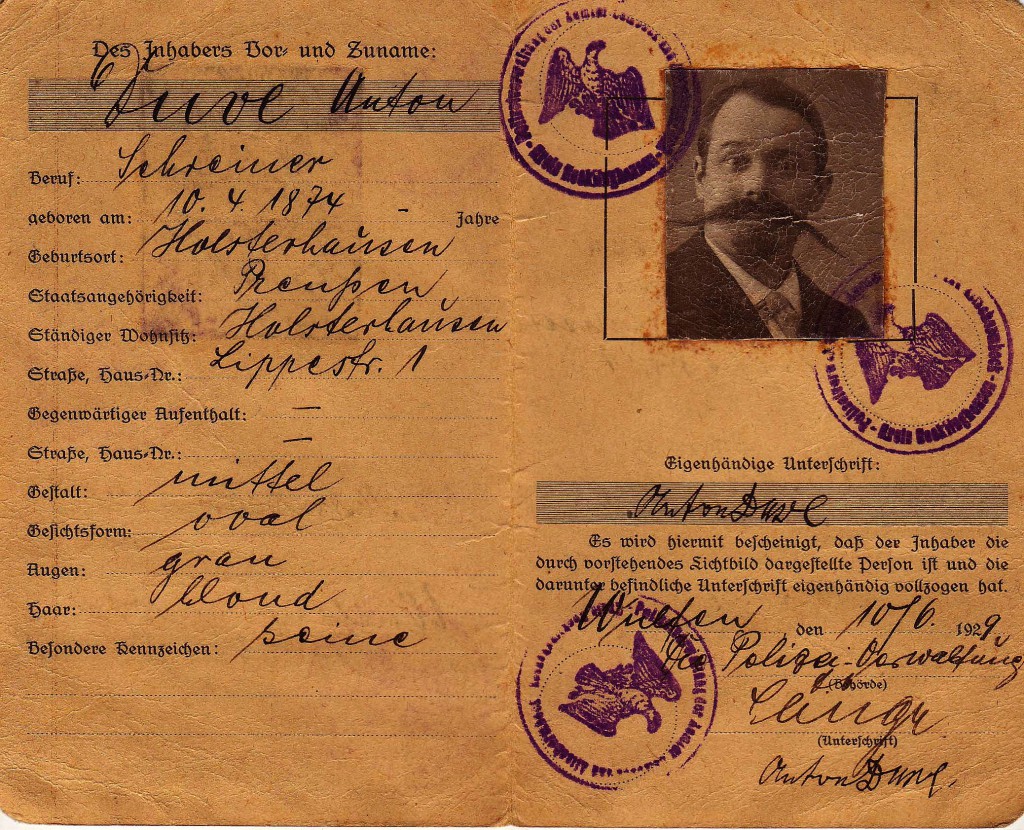 Des Inhabers Vor- und Zuname:
Duve Anton
Beruf: Schreiner
geboren am: 10. 4. 1874 - Jahre
Geburtsort: Holsterhausen
Staatsangehörigkeit: Preußen
Ständiger Wohnsitz: Holsterhausen
Straße, Haus-Nr.: Lippestr. 1
Gegenwärtiger Aufenthalt: —
Straße, Haus-Nr.: —
Gestalt: mittel
Gesichtsform: oval
Augen: grau
Haar: blond
Besondere Kennzeichen: keine
Kreis Recklinghausen
Kreis Recklinghausen
Eigenhändige Unterschrift:
Anton Duve
Es wird hiermit bescheinigt, daß der Inhaber die
durch vorstehendes Lichtbild dargestellte Person ist und die
darunter befindliche Unterschrift eigenhändig vollzogen hat.
Wulfen den 10/6. 1929
Die Polizei-Verwaltung
(Behörde)
(Unterschrift)
Anton Duve.